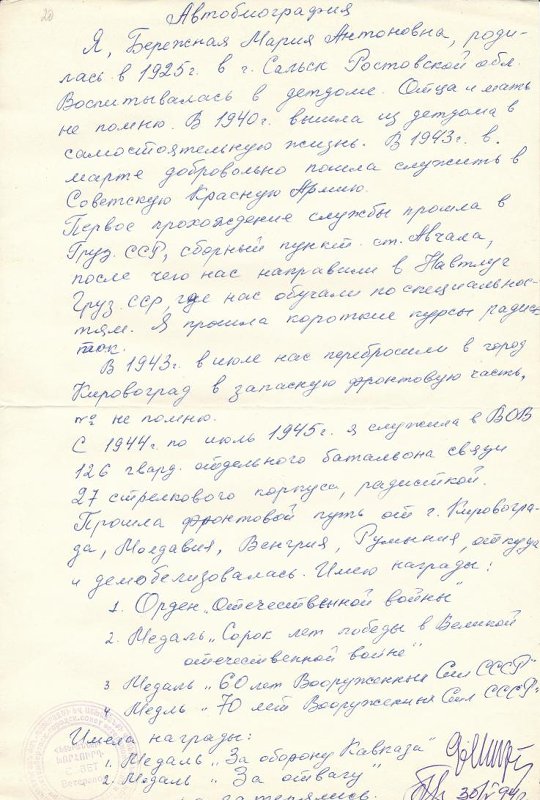 20
Автобиография
Я, Бережная Мария Антоновна, роди-
лась в 1925г. в г. Сальск Ростовской обл.
Воспитывалась в детдоме. Отца и мать
не помню. В 1940г. вышла из детдома в
самостоятельную жизнь. В 1943г. в.
марте добровольно пошла служить в
Советскую Красную Армию.
Первое прохождение службы прошла в
Груз. ССР, сборный пункт ст. Авчала,
после чего нас направили в Навтлуг
Груз. ССР, где нас обучали по специальнос-
тям. Я прошла короткие курсы радис-
ток.
В 1943г. в июле нас перебросили в город
Кировоград в запасную фронтовую часть,
№ не помню.
С 1944г. по июль 1945г. я служила в ВОВ
126 гвард. отдельного батальона связи
27 стрелкового корпуса, радисткой.
Прошла фронтовой путь от г. Кировогра-
да, Молдавия, Венгрия, Румыния, откуда
и демобелизовалась. Имею награды:
1. Орден „Отечественной войны"
2. Медаль „Сорок лет победы в Великой
отечественной войне"
3 Медаль „60 лет Вооруженных Сил СССР"
4 Медль „70 лет Вооруженных Сил СССР"
Имела награды:
1. Медаль „За оборону Кавказа"
2. Медаль „За отвагу"
затерялись.